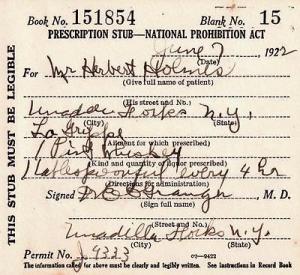 Book No. 151854 Blank No. 15
PRESCRIPTION STUB—NATIONAL PROHIBITION ACT
June 7, 1922
(Date)
For Mr Herbert Holmes
(Give full name of patient)
(His street and No.)
Unadilla Forks N.Y.
(City) (State)
La Grippe
(Ailment for which prescribed)
1 Pint Whiskey
(Kind and quantity of liquor prescribed)
1 tablespoonful every 4 hr
(Directions)
Signed M. D.
(Sign full name)
(Street and No.)
Unadilla Forks N.Y.
(City) (State)
Permit No. 9333
The information called for above must be clearly and legibly written. See instructions in Record Book
THIS STUB MUST BE LEGIBLE